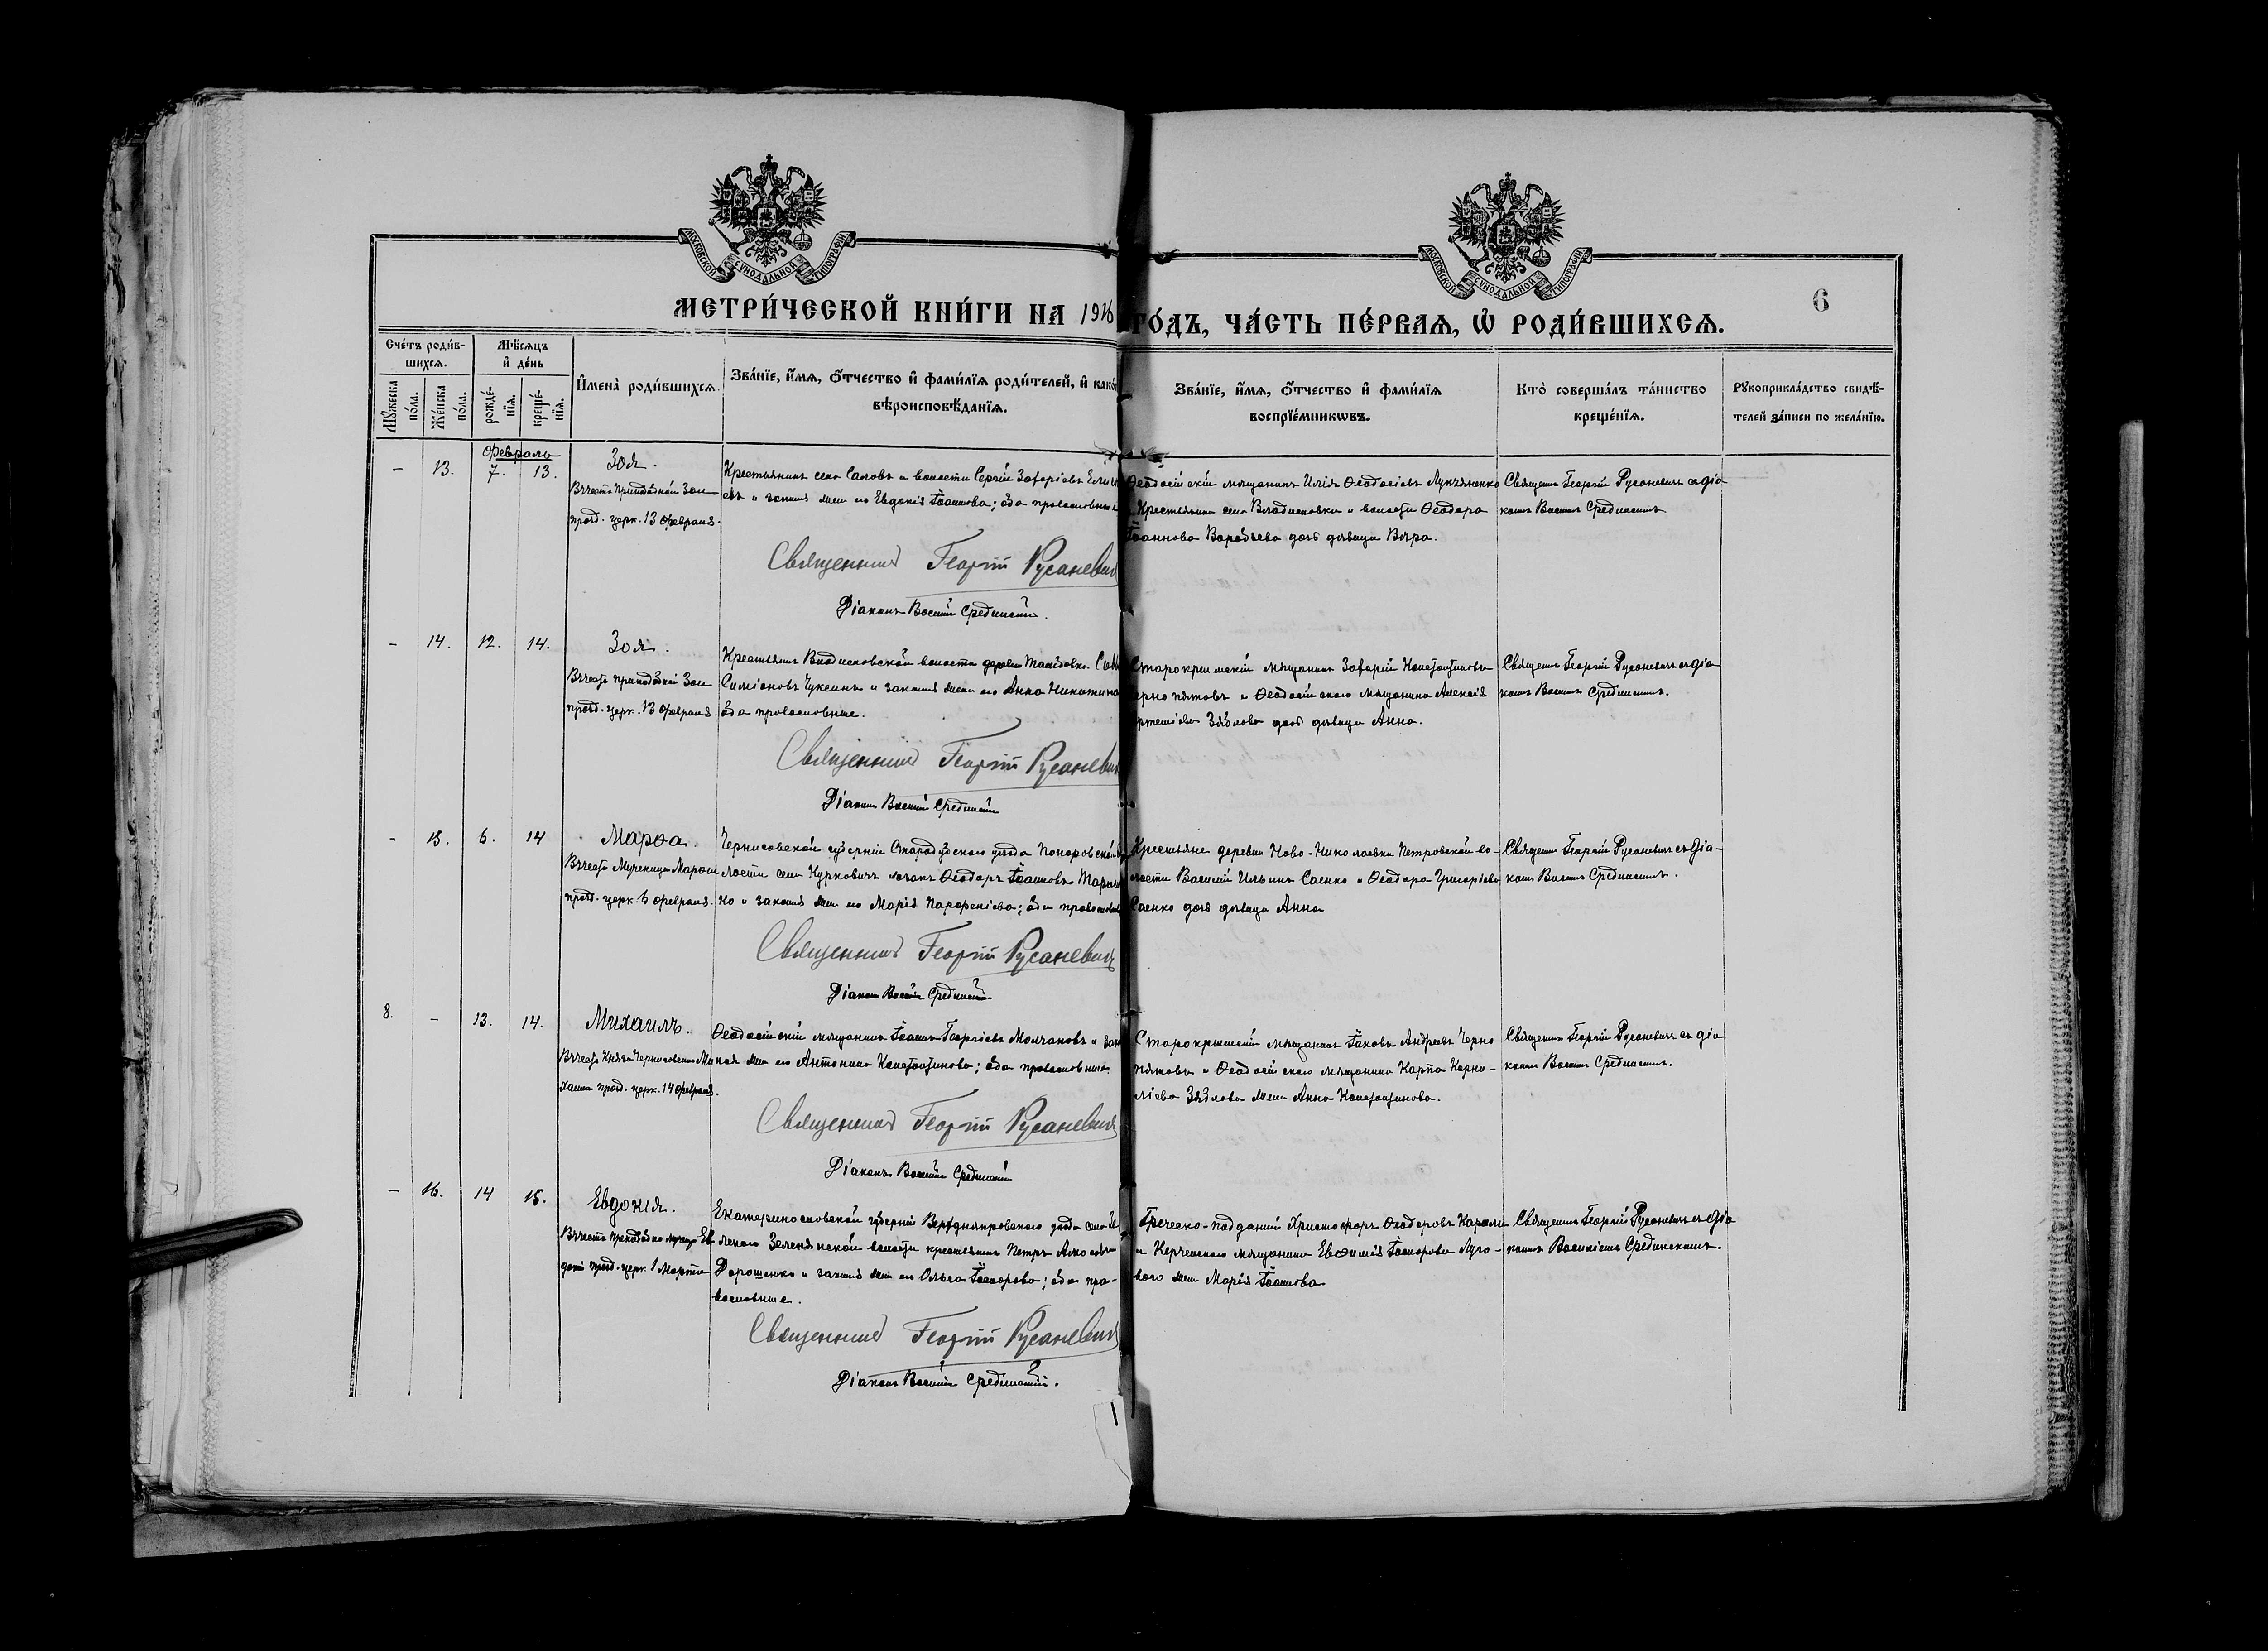 МОСКОВСКОЙ СѴНОДАЛЬНОЙ ТИПОГРАФІИ
МОСКОВСКОЙ СѴНОДАЛЬНОЙ ТИПОГРАФІИ
МЕТРИ́ЧЕСКОЙ КНИ́ГИ НА 1916
ГО́ДЪ, ЧА́СТЬ ПЕ́РВАѦ, Ѡ҆ РОДИ́ВШИХСѦ.
6
Сче́тъ роди́в-
шихсѧ.
Мꙋ́жеска по́ла.
Же́нска по́ла.
Мѣ́сѧцъ
и҆ де́нь
рожде́-
нїѧ.
креще́-
нїѧ.
И҆мена̀ роди́вшихсѧ
Зва́нїе, и҆́мѧ, ѻ҆́тчество и҆ фами́лїѧ роди́телей, и҆ како́
вѣроисповѣ́данїѧ.
Зва́нїе, и҆́мѧ, ѻ҆́тчество и҆ фами́лїѧ
воспрїе́мникѡвъ.
Кто̀ соверша́лъ та́инство
креще́нїѧ.
Рꙋкоприкла́дство свидѣ́-
телей за́писи по жела́нїю.
Февраль
- 13. 7. 13.
Зоя.
Въ честь Преподобной Зои
празд. церк. 13 февраля.
Крестьянинъ села и волости Сергій Захаріевъ
и законная жена его Евдокія Іоаннова; оба православные
Священникъ Георгій Русаневичъ
Діаконъ Василій Срединскій.
Ѳеодосійскій мѣщанинъ Илія Ѳеодосіевъ Лукьяненко
Крестьянина села Владиславовки и волости Ѳеодора
Іоаннова Воробьева дочь дѣвица Вѣра.
Священ. Георгій Русаневичъ съ діа
кономъ Василіемъ Срединскимъ
- 14. 12. 14.
Зоя.
Въ честь преподобной Зои
празд. церк. 13 февраля.
Крестьянинъ Владиславовской волости деревни
Симеоновъ Чуксинъ и законная жена его Анна Никитина
оба православные.
Священникъ Георгій Русаневичъ
Діаконъ Василій Срединскій
Старокрымскій мѣщанинъ Захарій Константиновъ
Чернопятовъ и Ѳеодосійскаго мѣщанина Алексія
Зяблова дочь дѣвица Анна.
Священ. Георгій Русаневичъ съ діа
кономъ Василіемъ Срединскимъ.
- 15. 6. 14
Марѳа.
Въ честь Мученицы Марѳы
празд. церк. 6 февраля.
Черниговской губерніи Стародубскаго уѣзда Понуровской
волости села Курковичъ казакъ Ѳеодоръ Іоанновъ
и законная жена его Марія Парѳеніева; оба православные
Священникъ Георгій Русаневичъ
Діаконъ Василій Срединскій.
Крестьяне деревни Ново-Николаевки Петровской во-
лости Василій Ильинъ Саенко и Ѳеодора Григоріева
Саенко дочь дѣвица Анна
Священ. Георгій Русаневичъ съ діа-
кономъ Василіемъ Срединскимъ.
8. - 13. 14.
Михаилъ.
Въ честь Князя Черниговскаго Ми
хаила празд. церк. 14 февраля.
Ѳеодосійскій мѣщанинъ Іоаннъ Георгіевъ Молчановъ и закон
ная жена его Антонина Константинова; оба православные.
Священникъ Георгій Русаневичъ
Діаконъ Василій Срединскій
Старокрымскій мѣщанинъ Іаковъ Андреевъ Черно
пятовъ и Ѳеодосійскаго мѣщанина Карпа Корни-
ліева Зяблова жена Анна Константинова.
Священ. Георгій Русаневичъ съ діа
кономъ Василіемъ Срединскимъ.
- 16. 14 15.
Евдокія.
Въ честь Преподобно муч. Ев
докіи празд. церк. 1 Марта
Екатеринославской губерніи Верхнеднѣпровскаго уѣзда села
Зеленянской волости крестьянинъ Петръ
Дорошенко и законная жена его Ольга; оба пра-
вославные.
Священникъ Георгій Русаневичъ
Діаконъ Василій Срединскій.
Греческо-подданный Христофоръ Ѳеодоровъ
и Керченскаго мѣщанина Евѳимія Луго-
вого жена Марія Іоаннова
Священ. Георгій Русаневичъ съ діа
кономъ Василіемъ Срединскимъ.